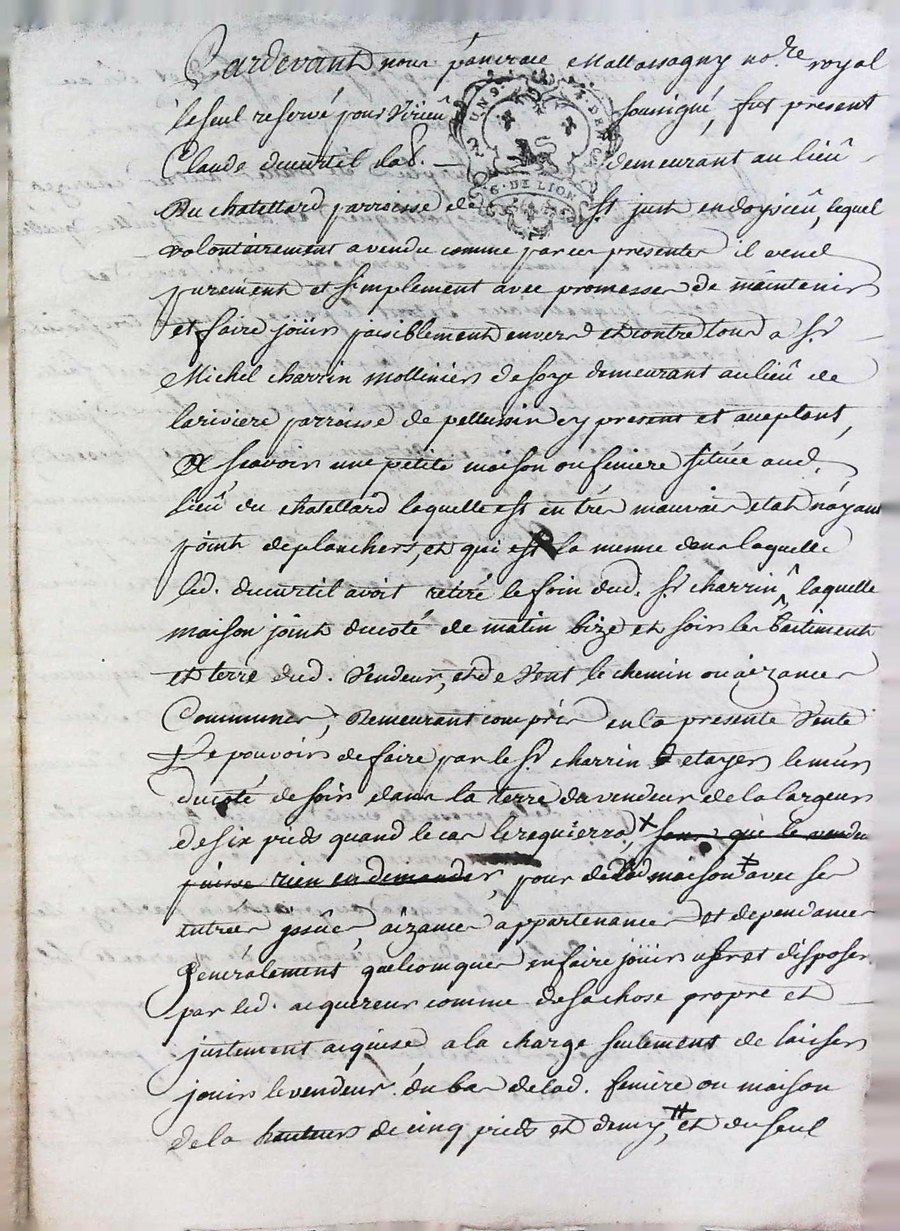 Pardevant nous pancrace Mattassagny no.re royal
le seul reservé pour Virieû soussigné, fut present
Claude ducurtil lab.r demeurant au lieû
Du chatellard parroisse de St just en doysieû, lequel
volontairement a vendu comme par ces presentes il vend
purement et simplement avec promesses de maintenir
et faire joüir paisiblement envers et contre tous a Sr
Michel charrin mollinier de soye demeurant au lieû de
la riviere parroisse de pellussin cy present et acceptant,
Scavoir une petite maison ou feniere située aud.
lieû du chatellard laquelle est en trés mauvais etat n'ayant
point de planchers, et qui est la meme dans laquelle
led. ducurtil avoit retiré le foin dud. Sr charrin, laquelle
maison joint du coté de matin bize et soir les batiments
et terre dud. Vendeur, et de Vent le chemin ou aizances
Communes, Demeurant compris en la presente Vente
Le pouvoir de faire par le Sr charrin etayer le mur
du coté de soir dans la terre du vendeur de la largeur
de six pieds quand le cas le requierra, sans que le vendeur
puisse rien en demander, pour de lad maison avec ses
entrées issües aizances appartenances et dependances
generalement quelconques en faire joüir user et disposer
par led. acquereur comme de sa chose propre et
justement acquise a la charge seulement de laisser
jouir le vendeur du bas de lad. feniere ou maison
de la hauteur de cinq pieds et demy, et du seul
6. DE LION